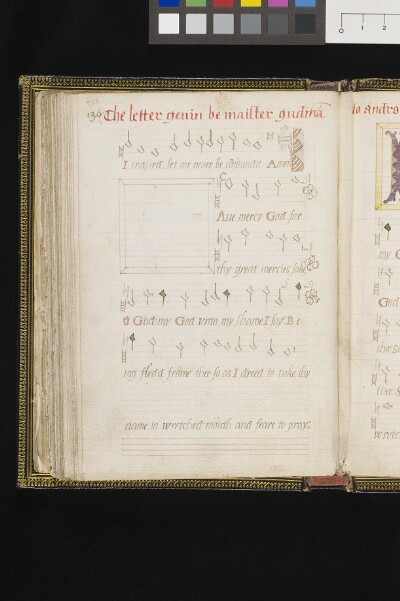 The letter gevin be maister gudmā
I traised, let me never be cōfoundit Amen
Aue mercy God for
thy great mercies sake
O God my God vnto my shame I say Be
ing fled frome thee so as I dreed to take thy
name in wretched mouth and feare to pray:
to andro
my
God
thee
wretc